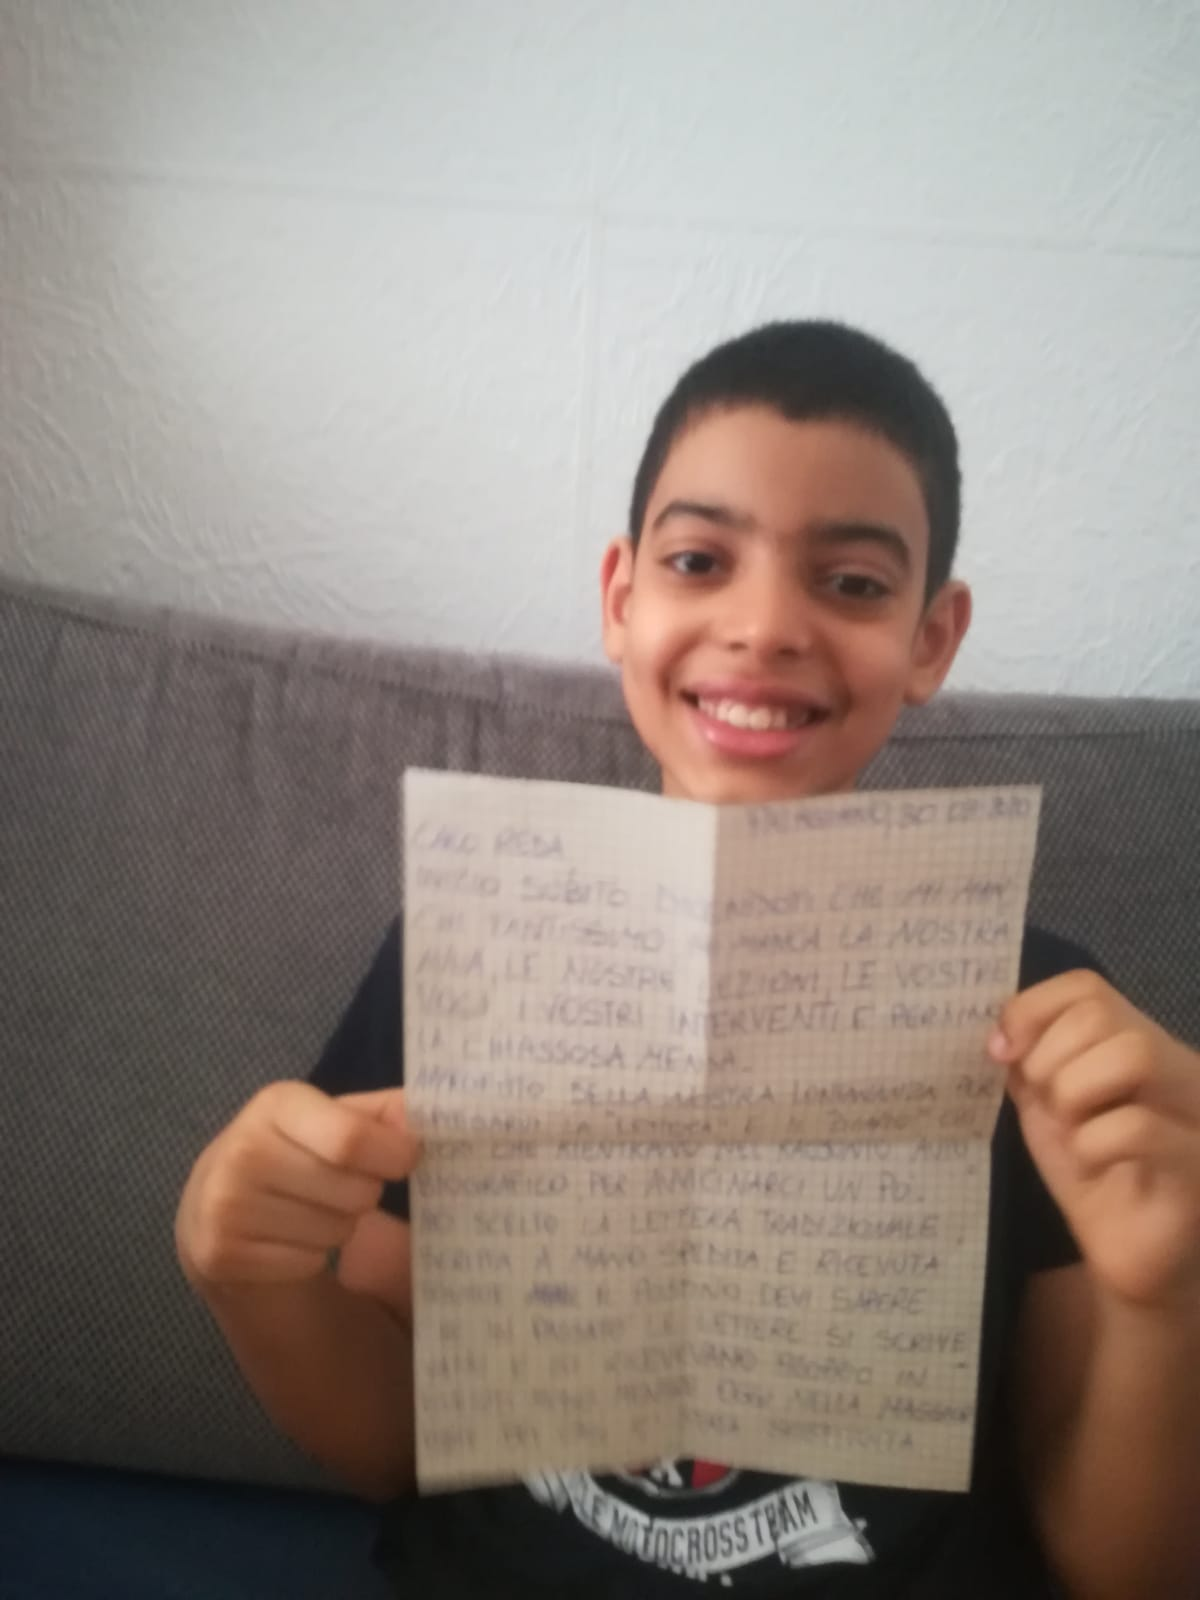 30
CARO REDA
INIZIO SUBITO DICENDOTI CHE MI MAN
CHI TANTISSIMO MI MANCA LA NOSTRA
AULA, LE NOSTRE LEZIONI, LE VOSTRE
VOCI I VOSTRI INTERVENTI E PERSINO
LA CHIASSOSA MENSA.
APPROFITTO DELLA NOSTRA LONTANANZA PER
LA "LETTERA" E IL "DIARIO"
CHE RIENTRANO NEL RACCONTO AUTO
BIOGRAFICO PER AVVICINARCI UN PO'.
HO SCELTO LA LETTERA TRADIZIONALE,
SCRITTA A MANO SPEDITA E RICEVUTA
IL POSTINO DEVI SAPERE
IN PASSATO LE LETTERE SI SCRIVE
VANO E SI RICEVEVANO SPESSO IN
OGGI NELLA MAGGIOR
PARTE DEI CASI E' STATA SOSTITUITA
LE MOTOCROSS TEAM